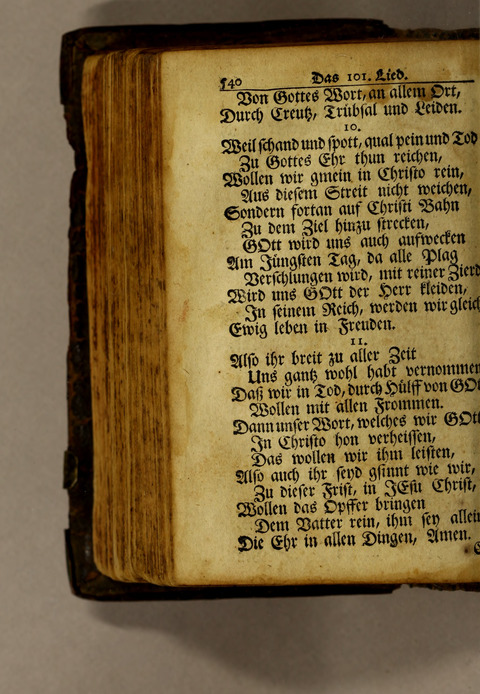 540 Das 101. Lied.
Von Gottes Wort, an allem Ort,
Durch Creutz, Trübsal und Leiden.
10.
Weil schand und spott, qual pein und Tod
Zu Gottes Ehr thun reichen,
Wollen wir gmein in Christo rein,
Aus diesem Streit nicht weichen,
Sondern fortan auf Christi Bahn
Zu dem Ziel hinzu strecken,
GOtt wird uns auch aufwecken
Am Jüngsten Tag, da alle Plag
Verschlungen wird, mit reiner Zierd
Wird uns GOtt der Herr kleiden,
In seinem Reich, werden wir gleich
Ewig leben in Freuden.
11.
Also ihr breit zu aller Zeit
Uns gantz wohl habt vernommen
Daß wir in Tod, durch Hülff von GOt
Wollen mit allen Frommen.
Dann unser Wort, welches wir GOtt
In Christo hon verheissen,
Das wollen wir ihm leisten,
Also auch ihr seyd gsinnt wie wir,
Zu dieser Frist, in JEsu Christ,
Wollen das Opffer bringen
Dem Vatter rein, ihm sey allein
Die Ehr in allen Dingen, Amen.